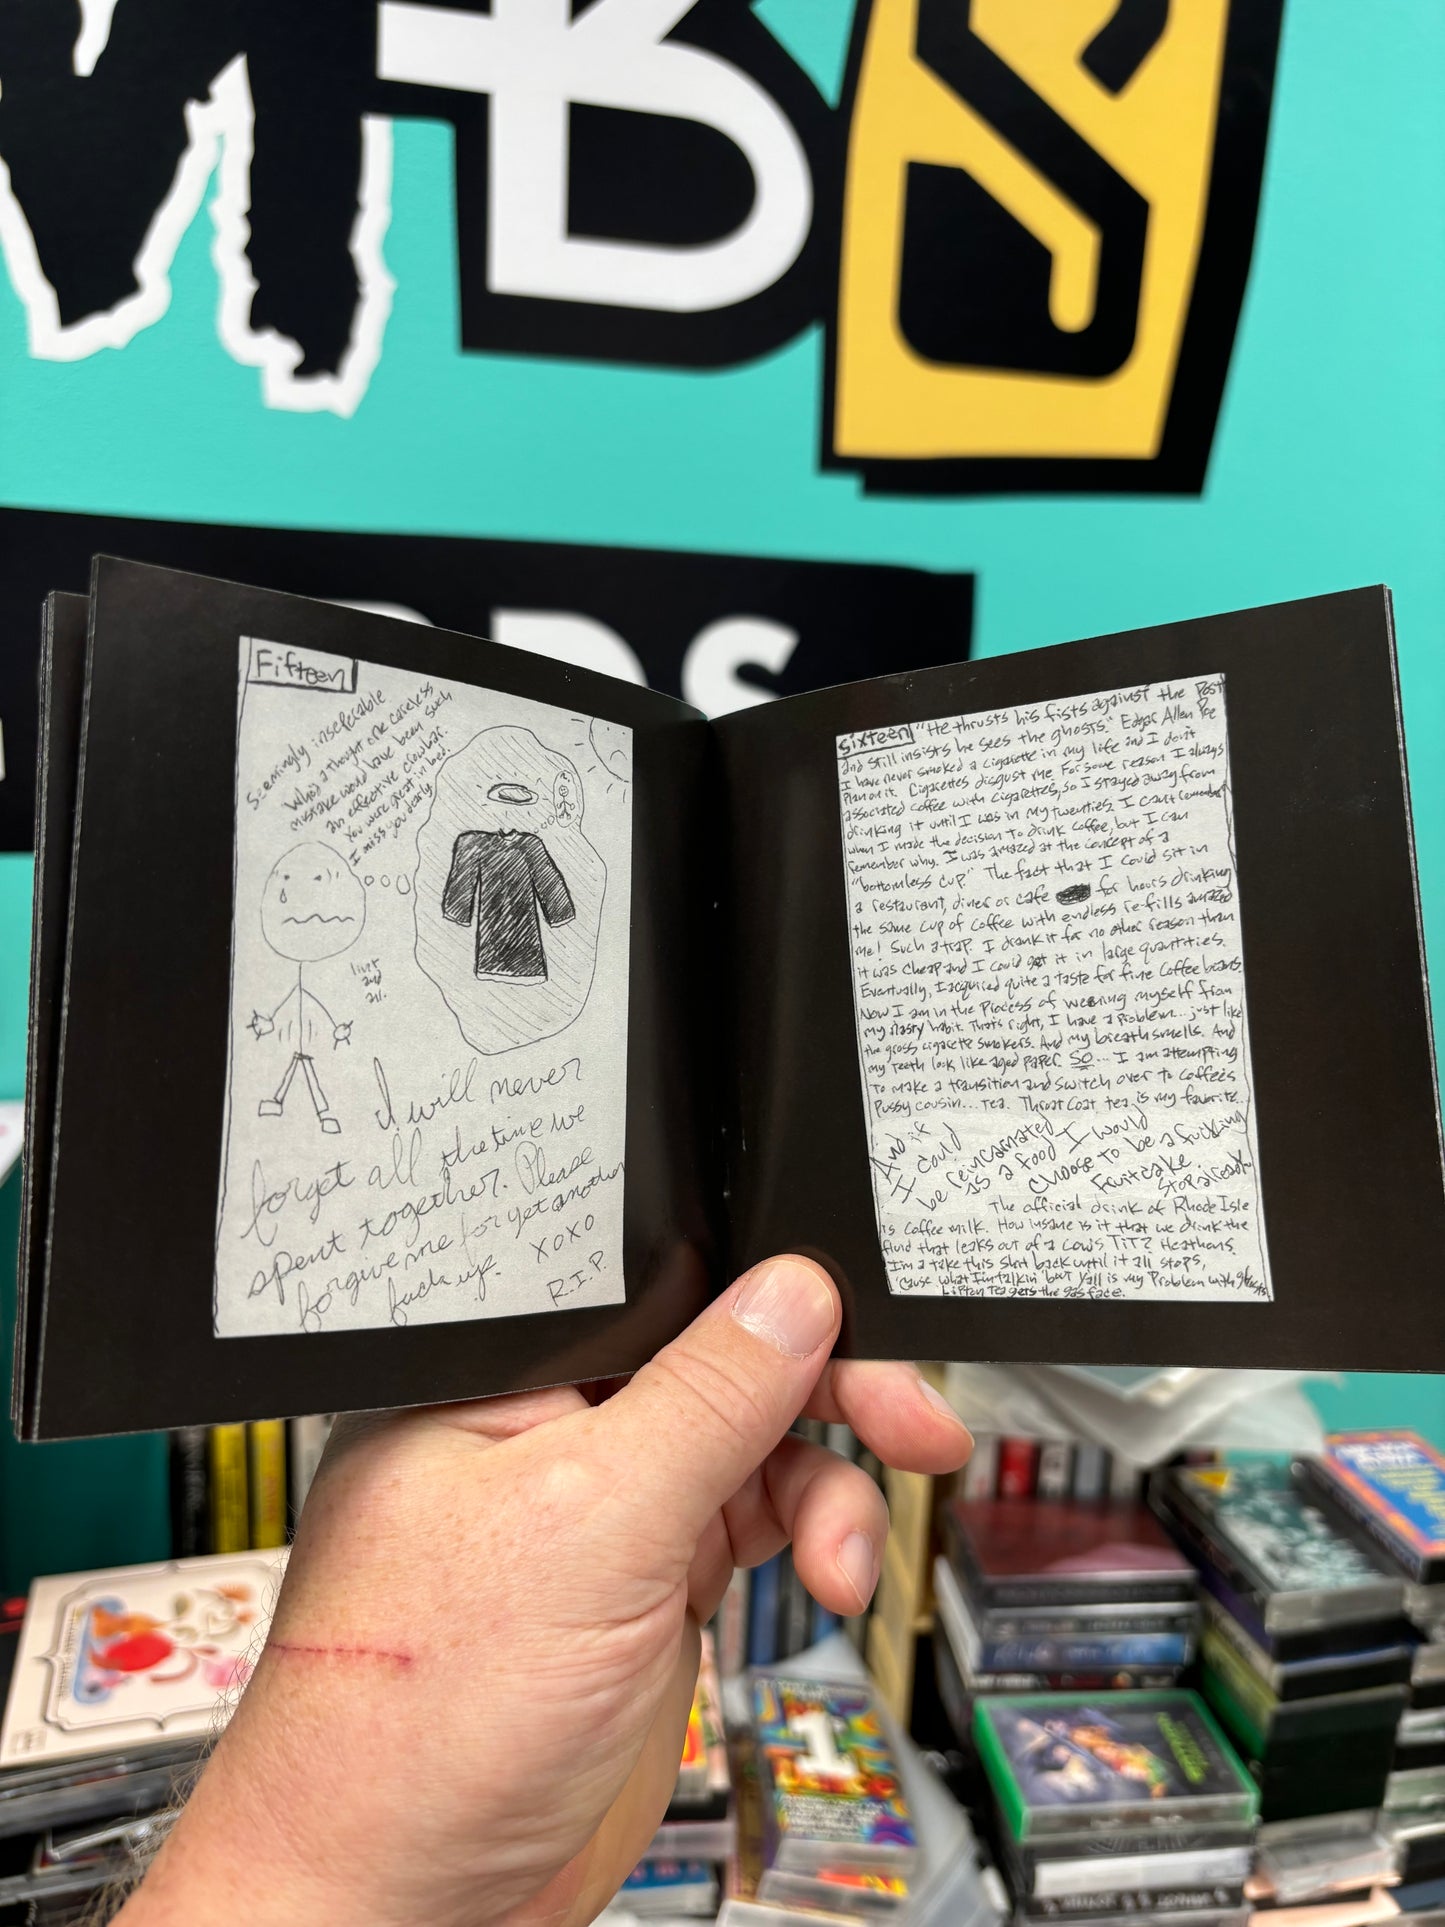 MBS
RDS
Fifteen
Seemingly inseperable
Who'd a thought one careless
mistake would have been such
an effective crowbar.
You were great in bed.
I miss you dearly.
lint
and
all.
I will never
forget all the time we
spent together. Please
forgive me for yet another
fuck up. XOXO
R.I.P.
sixteen "He thrusts his fists against the Post
and still insists he sees the ghosts." Edgar Allen Poe
I have never smoked a cigarette in my life and I don't
Plan on it. Cigarettes disgust me. For some reason I always
associated coffee with cigarettes, so I stayed away from
drinking it until I was in my twenties. I can't remember
when I made the decision to drink coffee, but I can
remember why. I was amazed at the concept of a
"bottomless cup." The fact that I could sit in
a restaurant, diner or cafe for hours drinking
the same cup of coffee with endless re-fills amazed
me! Such a trap. I drank it for no other reason than
it was cheap and I could get it in large quantities.
Eventually, I acquired quite a taste for fine coffee beans.
Now I am in the process of weening myself from
my nasty habit. That's right, I have a problem... just like
the gross cigarette smokers. And my breath smells. And
my teeth look like aged paper. SO... I am attempting
to make a transition and switch over to coffee's
Pussy cousin... tea. Throat Coat tea is my favorite...
And if
I could
be reincarnated
as a food I would
choose to be a fucking
Fruitcake
Stop already
The official drink of Rhode Isle
is coffee milk. How insane is it that we drink the
fluid that leaks out of a cow's TiT? Heathens.
I'm a take this shit back until it all stops,
'cause what I'm talkin' bout y'all is my problem with ghosts
Lipton Teagers the gas face.